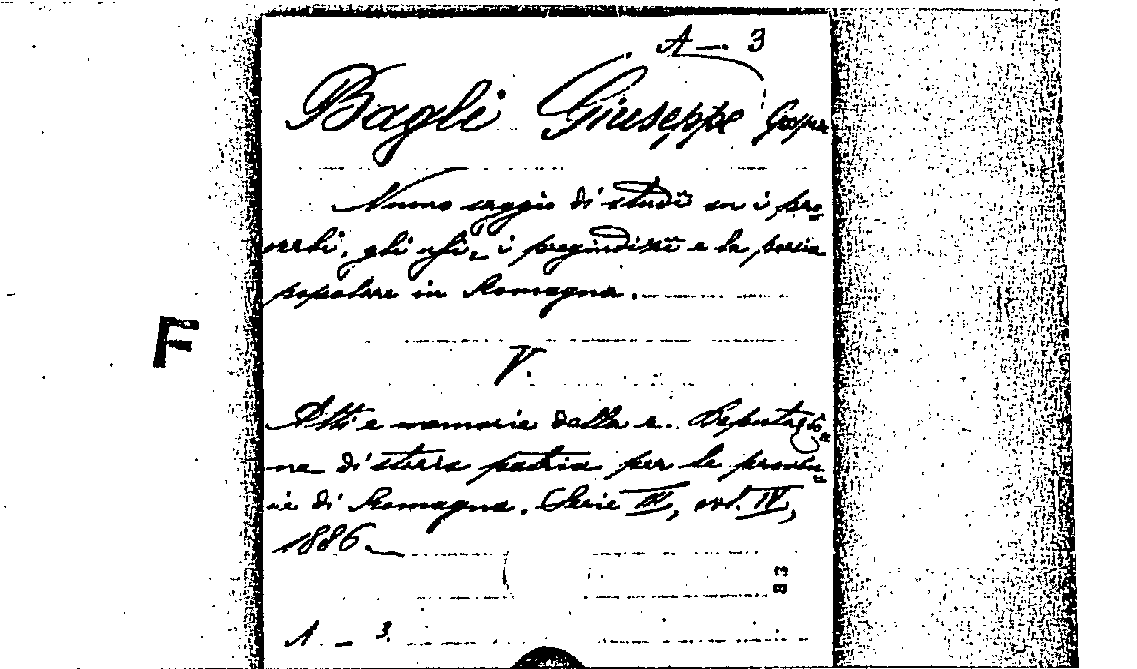 A — 3
Bagli Giuseppe Gaspar
Nuovo saggio di studî su i pro=
verbi, gli usi, i pregiudizî e la poesia
popolare in Romagna.
F
V.
Atti e memorie della r. Deputazio=
ne di storia patria per le provin=
cie di Romagna. Serie III, vol. IV,
1886.
83
A — 3.